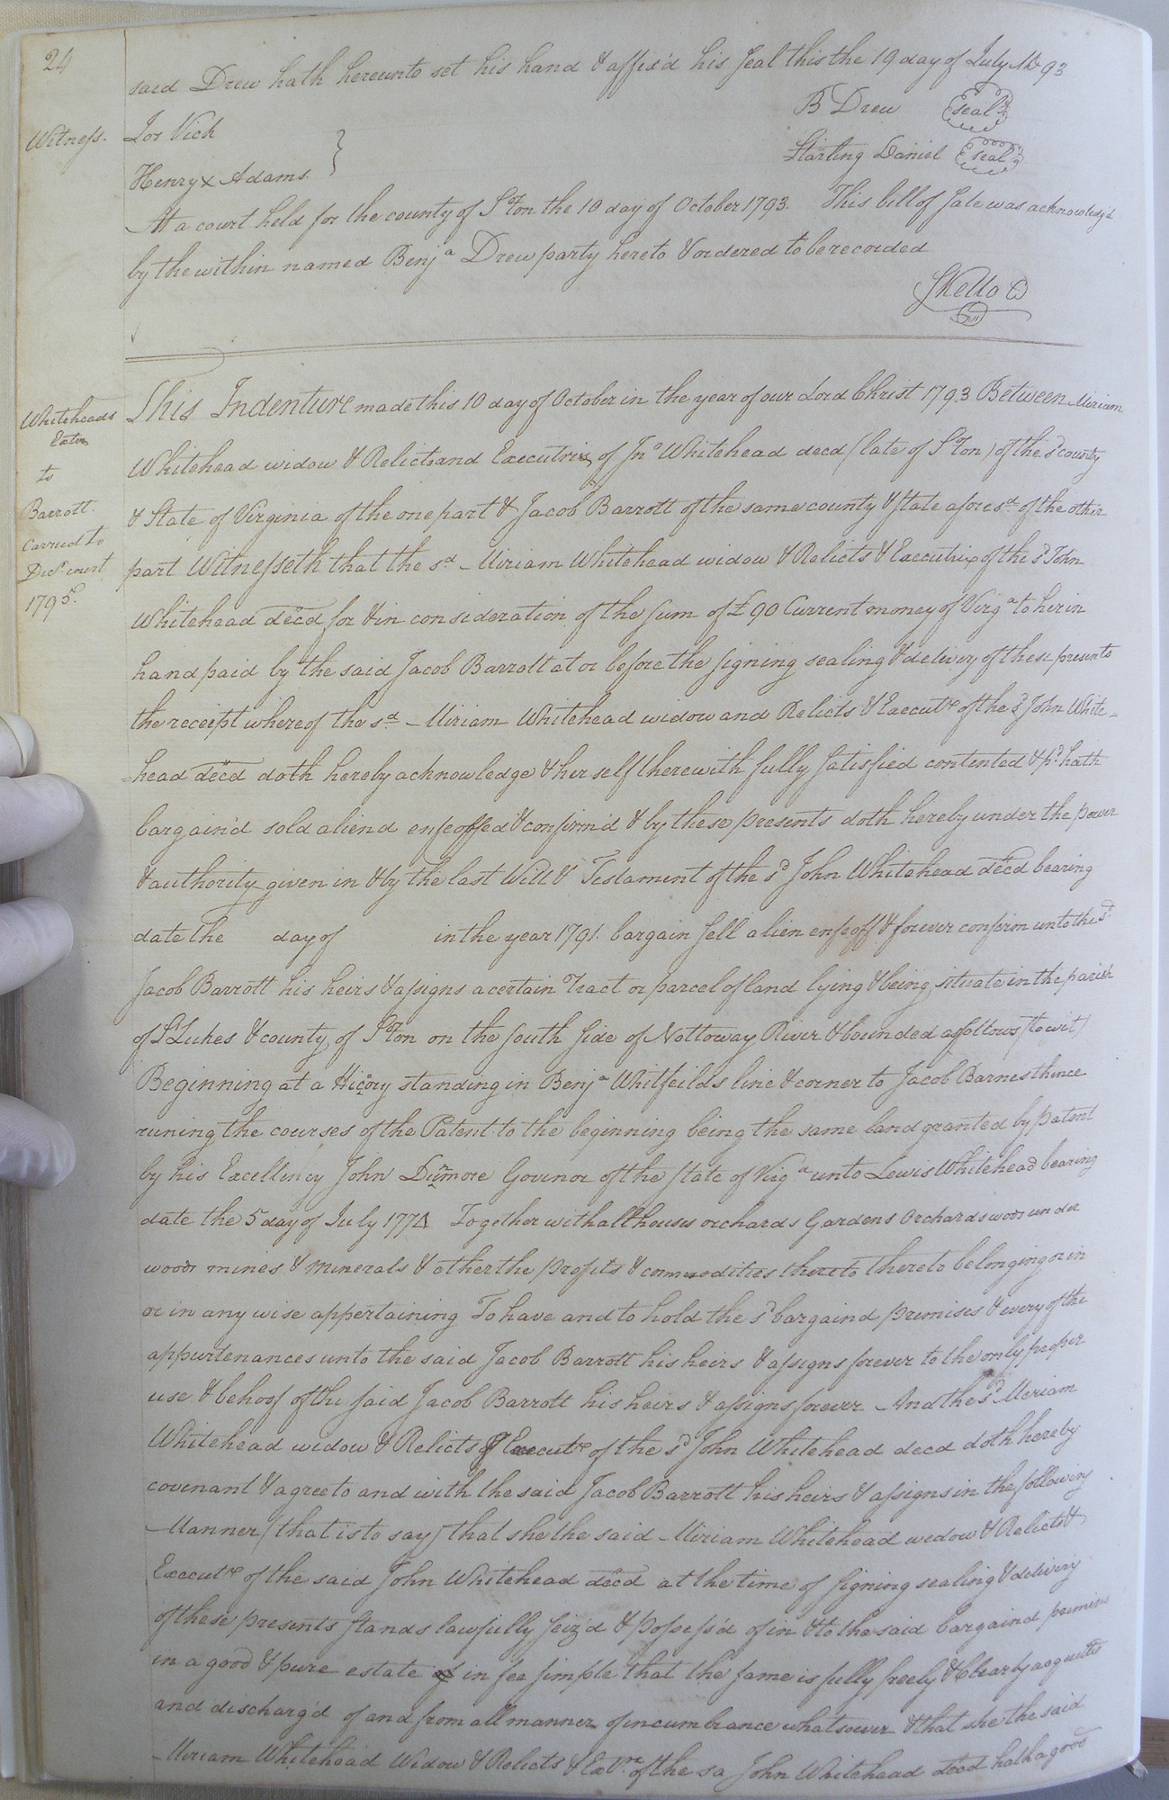 24
said Drew hath hereunto set his hand & affix'd his Seal this the 19 day of July 1793
B Drew seal
Witness. Jos Vick
Starling Daniel seal
Henry x Adams.
At a court held for the county of S°ton the 10 day of October 1793. This bill of Sale was acknowledg'd
by the within named Benjª Drew party hereto & ordered to be recorded
SKello C
Whiteheads
Extrx
to
Barrott.
Carried to
Dist court
1795.
This Indenture made this 10 day of October in the year of our Lord Christ 1793 Between Miriam
Whitehead widow & Relicts and Executrix of Jn° Whitehead decd (late of S°ton) of the sd county
& State of Virginia of the one part & Jacob Barrott of the same county & State afores.d of the other
part Witnesseth that the sd Miriam Whitehead widow & Relicts & Executrix of the sd John
Whitehead decd for & in consideration of the Sum of £90 Current money of Virgª to her in
hand paid by the said Jacob Barrott at or before the signing sealing & delivery of these presents
the receipt whereof the sd Miriam Whitehead widow and Relicts & Execute of the sd John White-
head decd doth hereby acknowledge & her self therewith fully satisfied contented & pd hath
bargain'd sold aliend enfeoffed & confirm'd & by these presents doth hereby under the power
& authority given in & by the last Will & Testament of the sd John Whitehead decd bearing
date the day of in the year 1791. bargain Sell alien enfeoff & forever confirm unto the sd
Jacob Barrott his heirs & assigns a certain Tract or parcel of land lying & being situate in the parish
of St Lukes & county of S°ton on the South Side of Nottoway River & bounded as follows (to wit)
Beginning at a Hicory standing in Benjª Whitfeilds line & corner to Jacob Barnes thence
runing the courses of the Patent to the beginning being the same land granted by patent
by his Excellency John Dunmore Govenor of the State of Virgª unto Lewis Whitehead bearing
date the 5 day of July 1774 Together with all houses orchards Gardens Orchards woods under
woods mines & minerals & other the profits & commodities thereto thereto belonging or in
or in any wise appertaining To have and to hold the sd bargaind premises & every of the
appurtenances unto the said Jacob Barrott his heirs & assigns forever to the only proper
use & behoof of the said Jacob Barrott his heirs & assigns forever And the sd Miriam
Whitehead widow & Relicts & Execute of the sd John Whitehead decd doth hereby
covenant & agree to and with the said Jacob Barrott his heirs & assigns in the following
Manner (that is to say) that she the said Miriam Whitehead widow & Relicts &
Execute of the said John Whitehead decd at the time of signing sealing & delivery
of these presents stands lawfully seiz'd & possess'd of in & to the said bargaind premises
in a good & pure estate in fee simple that the same is fully freely & clearly acquitts
and discharg'd of and from all manner of incumbrance whatsoever & that she the said
Miriam Whitehead Widow & Relicts & Extre of the sd John Whitehead decd hath a good